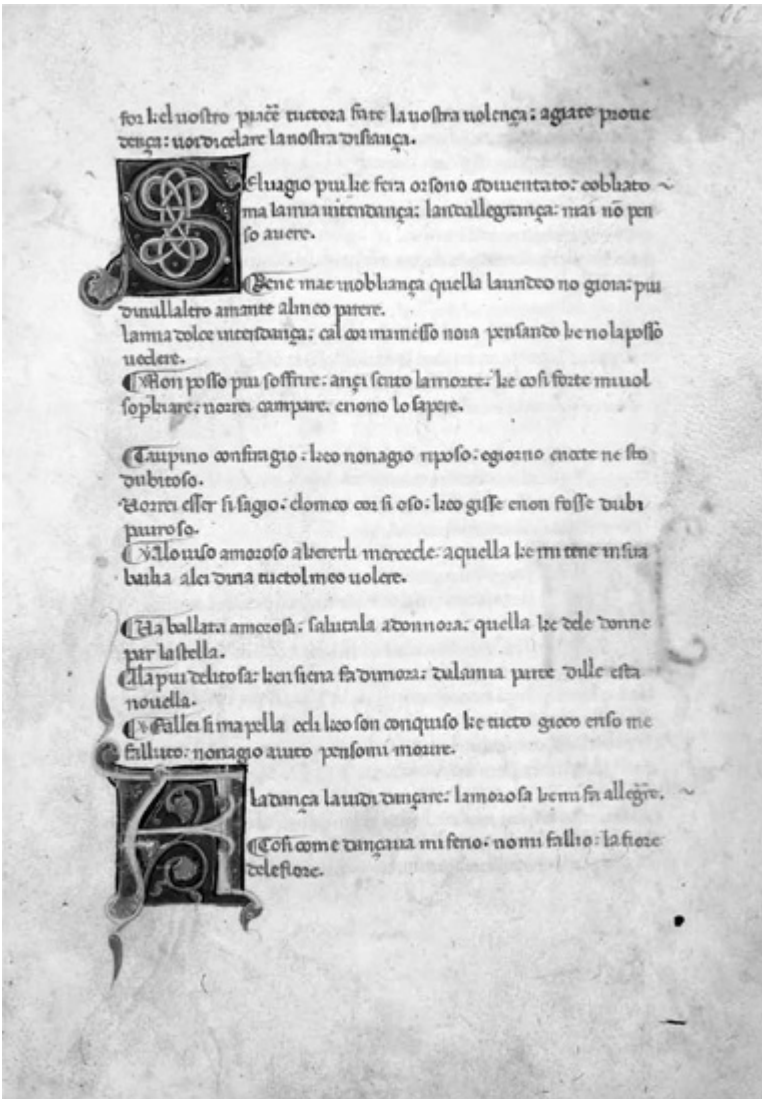 for kel uostro piacē tuctora fate la uostra uolença: agiate proue
dença: uoi di celare la nostra disiança.
Seluagio piu ke fera or sono aduentato: e obliato
ma la mia intendança: laudallegrança: mai nō pen
so auere.
Bene mae in obliança quella laundeo no gioia: piu
di nullaltro amante al meo parere.
la mia dolce intendança: cal cor mamesso noia pensando ke no la posso
uedere.
Non posso piu soffrire: ançi sento la morte: ke cosi forte mi uol
sopkiare: uorrei campare. e nono lo sapere.
Taupino confiragio: keo non agio riposo: e giorno e nocte ne sto
dubitoso.
Uorrei esser si sagio: e lo meo cor si oso: keo gisse e non fosse dubi
piuroso.
Alo uiso amoroso a kererli mercede. a quella ke mi tene in sua
bailia a lei dina tucto l meo uolere.
Ua ballata amorosa: saluta la donnora: quella ke dele donne
par la stella.
Ala piu delitosa: ken siena fa dimora: da la mia parte dille esta
nouella.
Fallei si mapella e di keo son conquiso ke tucto gioco e riso me
falluto: non agio aiuto pensomi morire.
A la dança la uidi dançare: lamorosa ke mi fa allegr̄e.
Cosi come dançaua mi ferio: no mi fallio: la fiore
dele fiore.